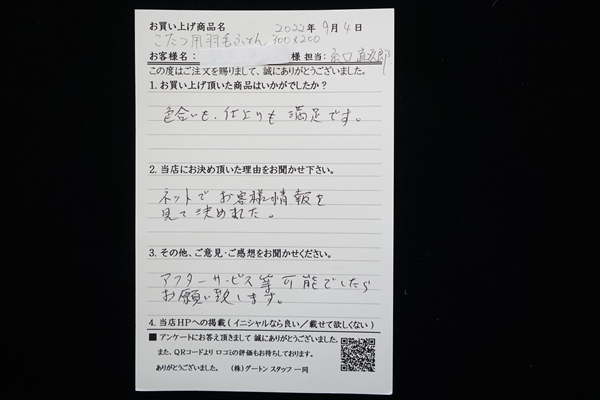 お買い上げ商品名 2022年 9月 4日
こたつ用羽毛ふとん 300×200
お客様名: 様 担当:
この度はご注文を賜りまして、誠にありがとうございました。
1. お買い上げ頂いた商品はいかがでしたか?
色合いも、仕上りも 満足です。
2. 当店にお決め頂いた理由をお聞かせ下さい。
ネットで お客様情報を
見て決めました。
3. その他、ご意見・ご感想をお聞かせください。
アフターサービス等 可能でしたら
お願い致します。
4. 当店HPへの掲載(イニシャルなら良い/載せて欲しくない)
■ アンケートにお答え頂きまして 誠にありがとうございました。
また、QRコードより 口コミの評価もお待ちしております。
ありがとうございました。 (株)ダートン スタッフ 一同